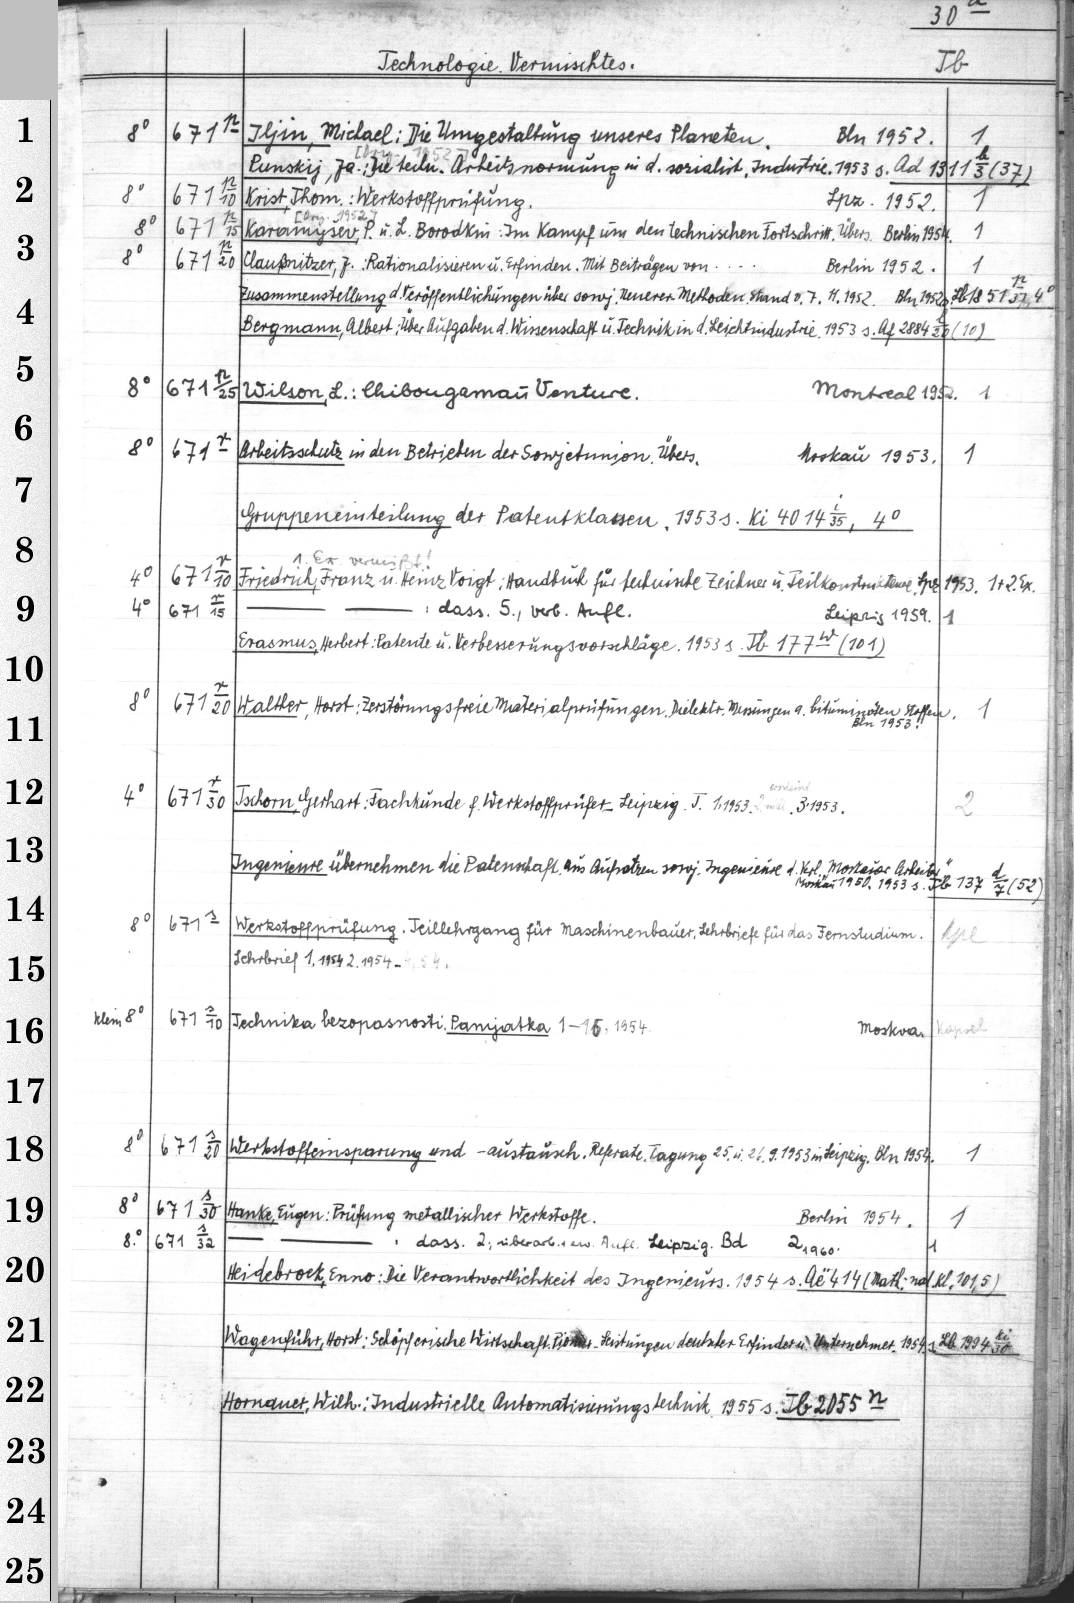 30 a
Technologie. Vermischtes. Tb
1 8° 671 n Iljin, Michael: Die Umgestaltung unseres Planeten. Bln 1952. 1
[Orig. 1952]
Punskij, Ja.: Die techn. Arbeitsnormung in d. sozialist. Industrie. 1953 s. Ad 1311 h/3 (37)
2 8° 671 n/10 Krist, Thom.: Werkstoffprüfung. Lpz. 1952. 1
[Orig. 1952]
3 8° 671 n/15 Karamysev, P. u. L. Borodkin: Im Kampf um den technischen Fortschritt. Übers. Berlin 1954. 1
8° 671 n/20 Claußnitzer, J.: Rationalisieren u. Erfinden. Mit Beiträgen von .... Berlin 1952. 1
4 Zusammenstellung d. Veröffentlichungen über sowj. Neuerer-Methoden. Stand v. 7. 11. 1952. Bln 1952 s. 1851 n/37, 4°
Bergmann, Albert: Über Aufgaben d. Wissenschaft u. Technik in d. Leichtindustrie. 1953 s. Af 2884 i/20 (10)
5 8° 671 n/25 Wilson, L.: Chibougamau Venture. Montreal 1952. 1
6 8° 671 r Arbeitsschutz in den Betrieben der Sowjetunion. Übers. Moskau 1953. 1
7 Gruppeneinteilung der Patentklassen. 1953 s. Ki 4014 i/35, 4°
8 1. Ex. vermißt!
4° 671 r/10 Friedrich, Franz u. Heinz Voigt: Handbuch für technische Zeichner u. Teilkonstrukteure. Lpz 1953. 1+2. Ex.
9 4° 671 r/15 —— —— : dass. 5., verb. Aufl. Leipzig 1959. 1
Erasmus, Herbert: Patente u. Verbesserungsvorschläge. 1953 s. Tb 177 w (101)
10 8° 671 r/20 Walther, Horst: Zerstörungsfreie Materialprüfungen. Dielektr. Messungen a. bituminösen Stoffen. 1
11 Bln 1953.
12 erscheint
4° 671 r/30 Tschorn, Gerhart: Fachkunde f. Werkstoffprüfer. Leipzig. T. 1. 1953. 2 3. 1953. 2
13 Ingenieure übernehmen die Patenschaft. Aus Aufsätzen sowj. Ingenieure d. Krl. Moskauer Arbeiter"
Moskau 1950. 1953 s. Tb 137 d/7 (52)
14 8° 671 s Werkstoffprüfung. Teillehrgang für Maschinenbauer. Lehrbriefe für das Fernstudium. Kpl
15 Lehrbrief 1. 1954 2. 1954 - 4. 54.
16 klein 8° 671 s/10 Technika bezopasnosti. Pamjatka 1-16. 1954 Moskva. Kapsel
17
18 8° 671 s/20 Werkstoffeinsparung und -austausch. Referate. Tagung 25. u. 26. 9. 1953 in Leipzig. Bln 1954. 1
19 8° 671 s/30 Hanke, Eugen: Prüfung metallischer Werkstoffe. Berlin 1954. 1
8.° 671 s/32 —— —— : dass. 2., überarb. u. erw. Aufl. Leipzig. Bd 2 1960. 1
20 Heidebroek, Enno: Die Verantwortlichkeit des Ingenieurs. 1954 s. Aë 414 (Math.-nat. Kl. 101,5)
21 Wagenführ, Horst: Schöpferische Wirtschaft. Pionier-Leistungen deutscher Erfinder u. Unternehmer. 1954 s. Lb 1994 ki/30
22 Hornauer, Wilh.: Industrielle Automatisierungstechnik. 1955 s. Tb 2055 n
23
24
25